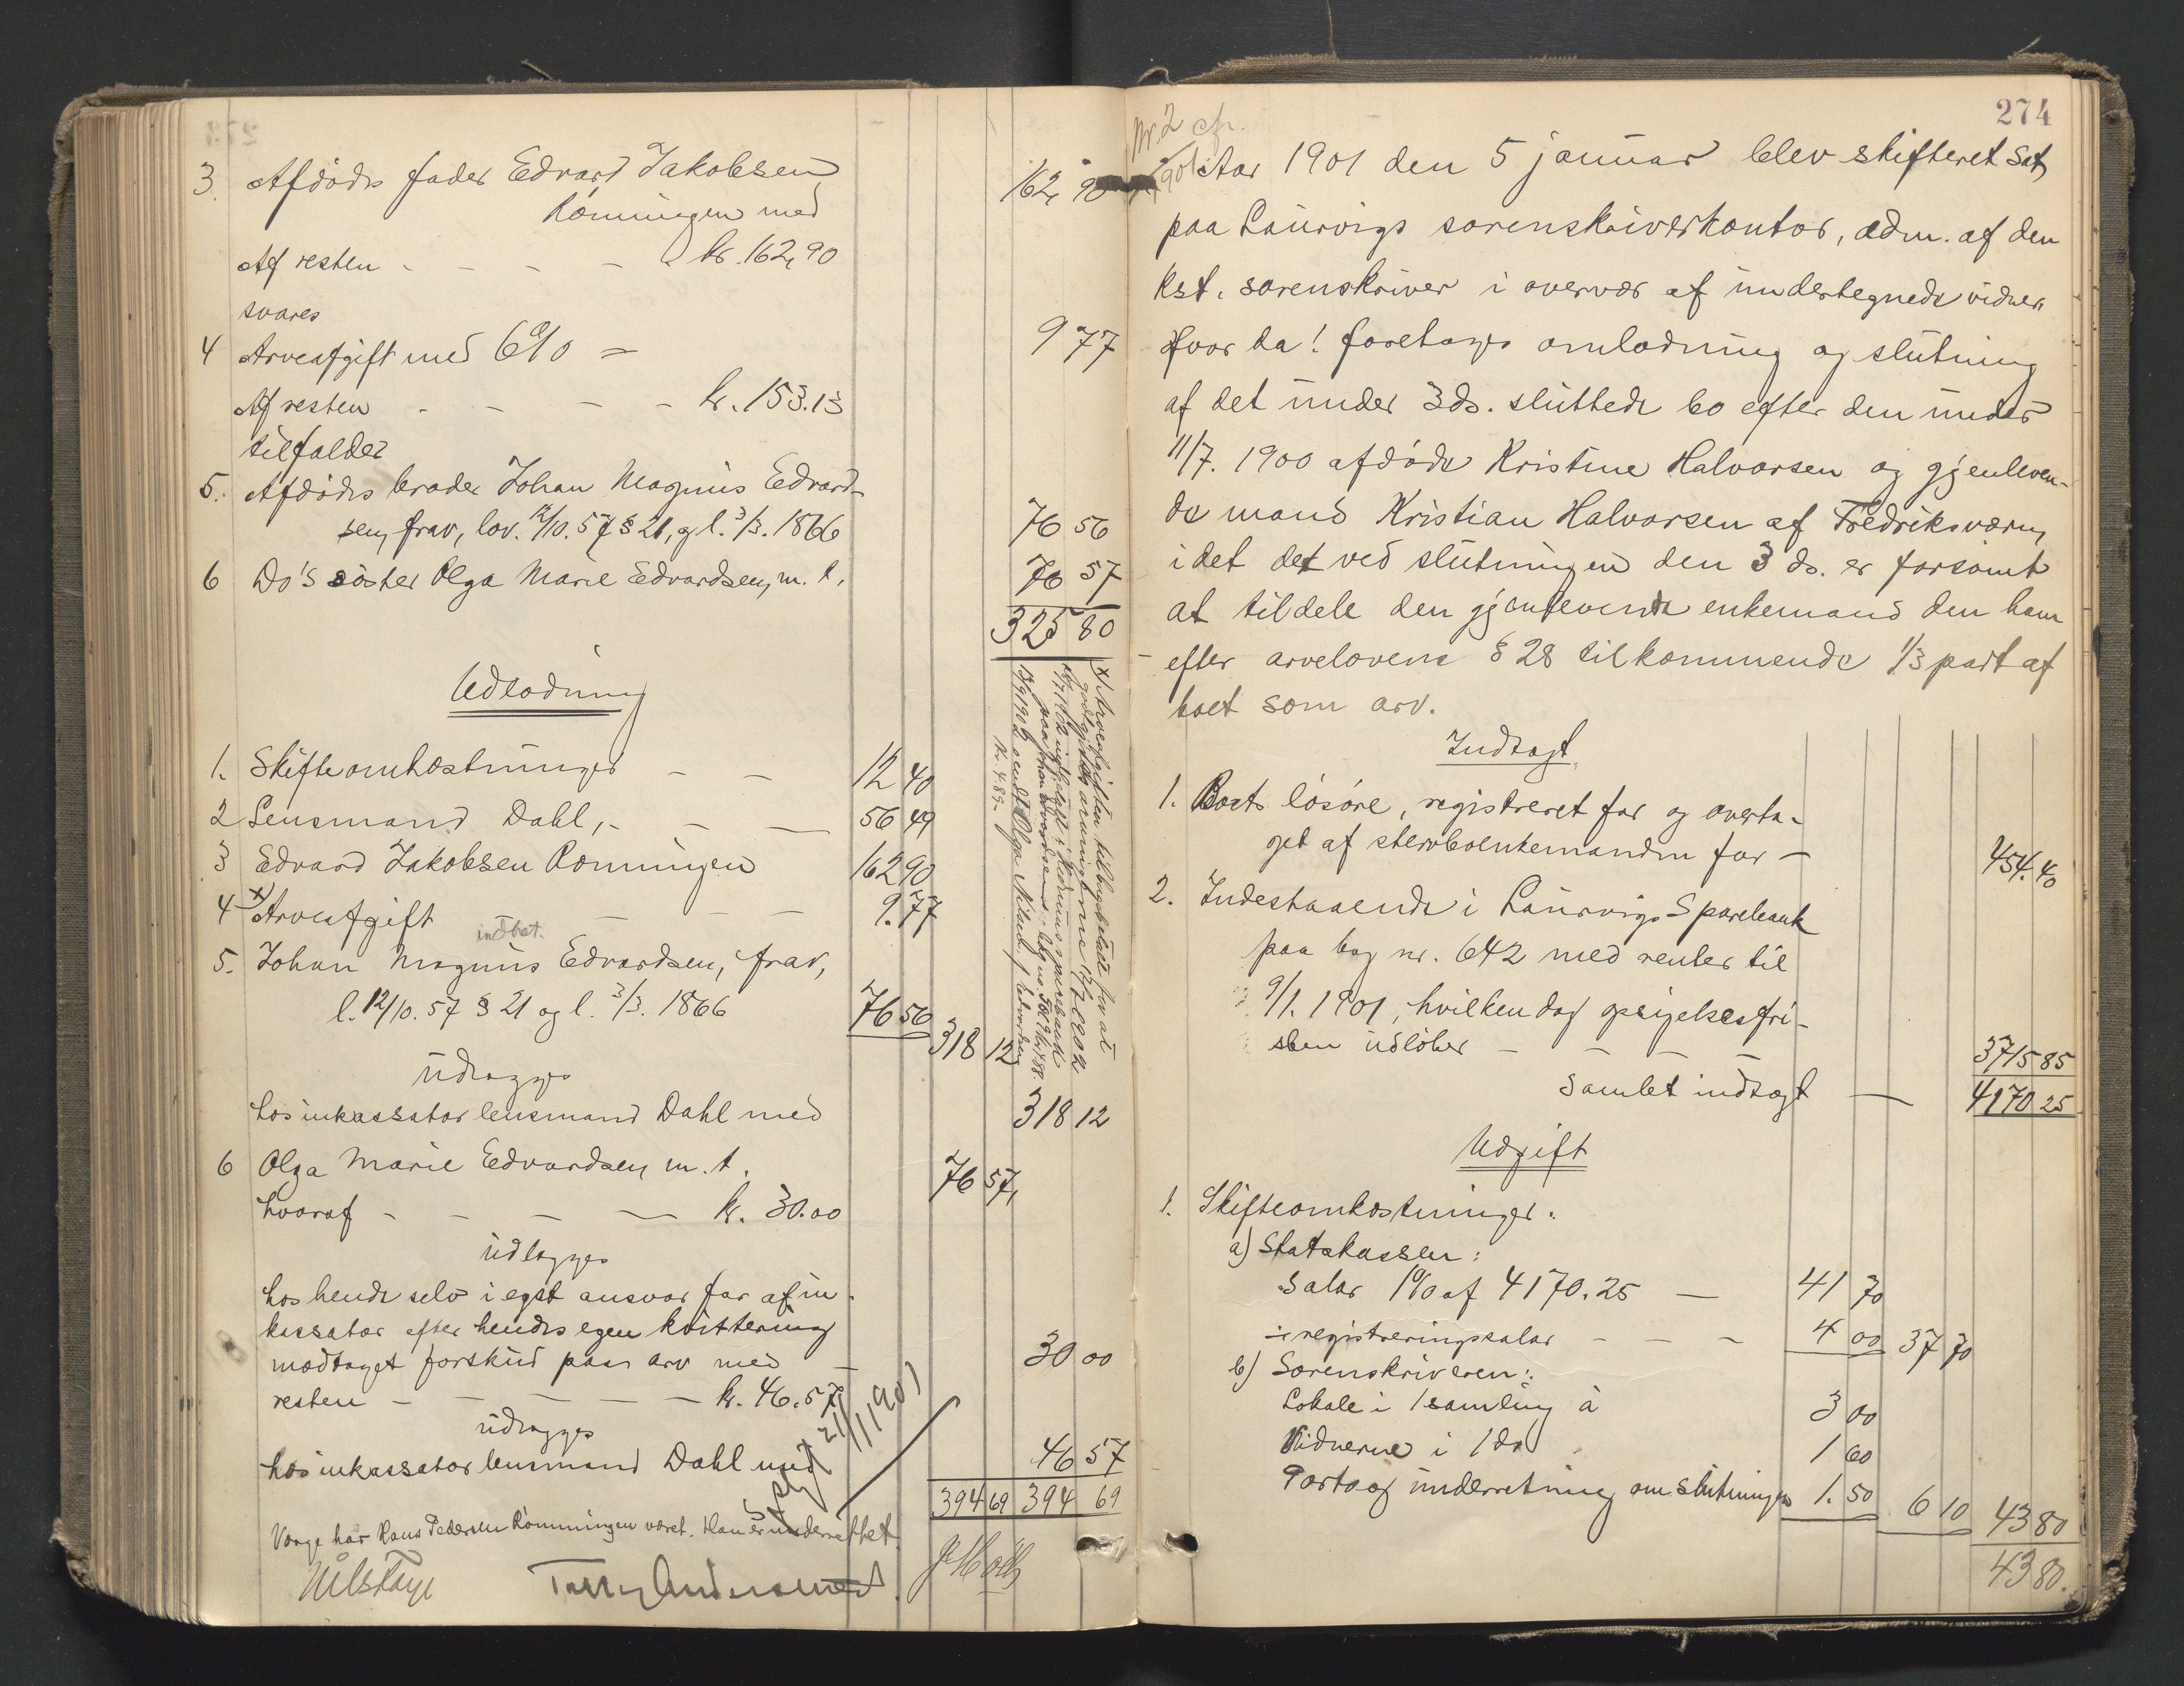 3. Afdødes fader Edvard Jakobsen
Rønningen med 162,90
Af resten - - - - kr. 162,90
svares
4 Arveafgift med 6% = 9 77
Af resten - - - - kr. 153.13
tilfalder
5. Afdødes broder Johan Magnus Edvard-
sen, frav, lov. 12/10. 57 § 21, og l. 3/3. 1866 76 56
6 Do's søster Olga Marie Edvardsen, m. t. 76 57
325 80
Udlodning
1. Skifteomkostninger - - 12 40
2 Lensmand Dahl, - - - 56 49
3 Edvard Jakobsen Rønningen 162 90
4 x) Arveafgift - - - 9.77
indbet.
5. Johan Magnus Edvardsen, frav,
l. 12/10. 57 § 21 og l. 3/3. 1866 76 56
318 12
udlægges
hos inkassator lensmand Dahl med 318 12
6 Olga Marie Edvardsen, m. t. 76 57,
hvoraf - - - - kr. 30.00
udlægges
hos hende selv i eget ansvar for af in-
kassator efter hendes egen kvittering
modtaget forskud paa arv med - 30 00
resten - - - - kr. 46.57
udlægges
hos inkassator lensmand Dahl med 46 57
394 69 394 69
21/1 1901
Værge har Hans Pedersen Rønningen været. Han er underrettet.
x) Arveafgiften tilbagebetalt for at
godtgjøres arvingerne 12/7 1902
Nr. 489.
274
Nr. 2 cfr.
1901
Aar 1901 den 5 januar blev skifteret sat
paa Laurvigs sorenskriverkontor, adm. af den
kst. sorenskriver i overvær af undertegnede vidner.
Hvor da! foretages omlodning og slutning
af det under 3 ds. sluttede bo efter den under
11/7. 1900 afdøde Kristine Halvorsen og gjenleven-
de mand Kristian Halvorsen af Fredriksværn,
idet det ved slutningen den 3 ds. er forsømt
at tildele den gjenlevende enkemand den ham
efter arvelovens § 28 tilkommende 1/3 part af
boet som arv.
Indtægt
1. Boets løsøre, registreret for og overta-
get af stervboenkemanden for - 454.40
2. Indestaaende i Laurvigs Sparebank
paa bog nr. 642 med renter til
9/1. 1901, hvilken dag opsigelsesfri-
sten udløber - - - - 3715 85
Samlet indtægt - 4170 25
Udgift
1. Skifteomkostninger:
a) Statskassen:
Salær 1% af 4170.25 - 41 70
÷ registreringssalær - - - 4 00 37 70
b) Sorenskriveren:
Lokale i 1 samling à 3 00
Vidnerne i 1 do 1 60
Porto og underretning om slutningen 1.50 6 10 43 80
43 80.